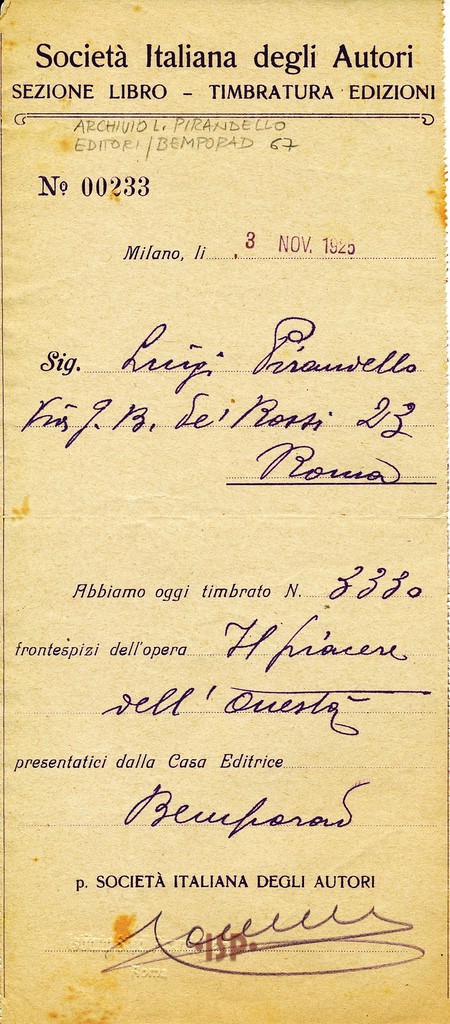 Società Italiana degli Autori
SEZIONE LIBRO – TIMBRATURA EDIZIONI
ARCHIVIO L. PIRANDELLO
EDITORI / BEMPORAD 67
Nº 00233
Milano, li 3 NOV. 1925
Sig. Luigi Pirandello
Via G. B. De' Rossi 23
Roma
Abbiamo oggi timbrato N. 3330
frontespizi dell'opera Il piacere
dell' Onestà
presentatici dalla Casa Editrice
Bemporad
p. SOCIETÀ ITALIANA DEGLI AUTORI
ISP.
Roma